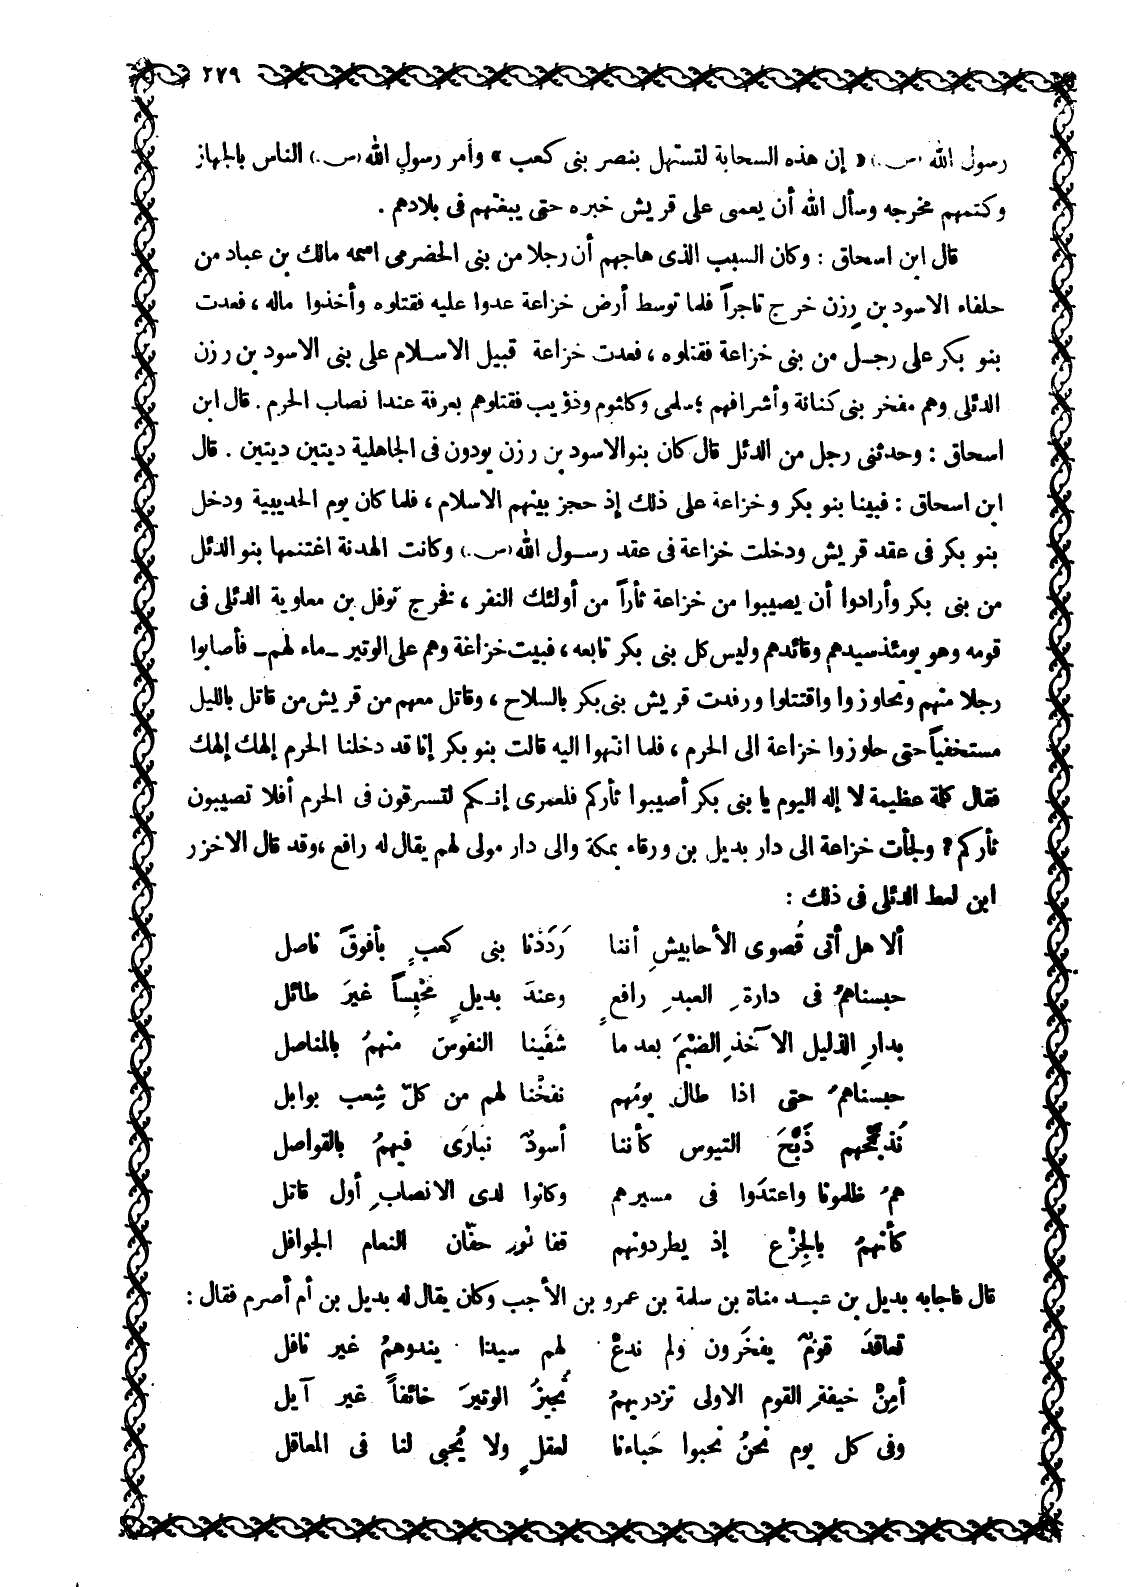 ٢٧٩
رسول الله (ص.) « إن هذه السحابة لتستهل بنصر بنى كعب » وأمر رسول الله (ص.) الناس بالجهاز
وكتمهم مخرجه وسأل الله أن يعمى على قريش خبره حتى يبغتهم فى بلادهم .
قال ابن اسحاق : وكان السبب الذى هاجهم أن رجلا من بنى الحضرمى اسمه مالك بن عباد من
حلفاء الاسود بن رزن خرج تاجراً فلما توسط أرض خزاعة عدوا عليه فقتلوه وأخذوا ماله ، فعدت
بنو بكر على رجل من بنى خزاعة فقتلوه ، فعدت خزاعة قبيل الاسلام على بنى الاسود بن رزن
الدئلى وهم مفخر بنى كنانة وأشرافهم ؛ سلمى وكلثوم وذؤيب فقتلوهم بعرفة عندا نصاب الحرم . قال ابن
اسحاق : وحدثنى رجل من الدئل قال كان بنو الاسود بن رزن يودون فى الجاهلية ديتين ديتين . قال
ابن اسحاق : فبينا بنو بكر وخزاعة على ذلك إذ حجز بينهم الاسلام ، فلما كان يوم الحديبية ودخل
بنو بكر فى عقد قريش ودخلت خزاعة فى عقد رسول الله (ص.) وكانت الهدنة اغتنمها بنو الدئل
من بنى بكر وأرادوا أن يصيبوا من خزاعة ثأراً من أولئك النفر ، فخرج نوفل بن معاوية الدئلى فى
قومه وهو يومئذ سيدهم وقائدهم وليس كل بنى بكر تابعه ، فبيت خزاعة وهم على الوتير ـ ماء لهم ـ فأصابوا
رجلا منهم وتحاوزوا واقتتلوا ورفدت قريش بنى بكر بالسلاح ، وقاتل معهم من قريش من قاتل بالليل
مستخفياً حتى حاوزوا خزاعة الى الحرم ، فلما انتهوا اليه قالت بنو بكر إنا قد دخلنا الحرم إلهك إلهك
فقال كلمة عظيمة لا إله اليوم يا بنى بكر أصيبوا ثأركم فلعمرى إنكم لتسرقون فى الحرم أفلا تصيبون
ثأركم ? ولجأت خزاعة الى دار بديل بن ورقاء بمكة والى دار مولى لهم يقال له رافع ، وقد قال الاخزر
ابن لعط الدئلى فى ذلك :
ألا هل أتى قُصوى الأحابيشِ أننا رَدَدْنا بنى كعبٍ بأفوقَ ناصل
حبسناهمُ فى دارةِ العبدِ رافعٍ وعندَ بديلٍ مَحْبِساً غيرَ طائل
بدارِ الذليل الآخذِ الضيْمَ بعد ما شفَينا النفوسَ منهمُ بالمناصل
حبسناهمُ حتى اذا طال يومُهم نفخْنا لهم من كلّ شِعب بوابل
نُذبّحُهم ذَبْحَ التيوس كأننا أسودٌ تبارَى فيهمُ بالقواصل
همُ ظلمونا واعتدَوا فى مسيرهم وكانوا لدى الانصابِ أول قاتل
كأنهمُ بالجِزْع إذ يطردونهم قفا ثور حفّان النعام الجوافل
قال فاجابه بديل بن عبد مناة بن سلمة بن عمرو بن الأجب وكان يقال له بديل بن أم أصرم فقال :
تعاقدَ قومٌ يفخَرون ولم ندعْ لهم سيدا يندوهمُ غير نافل
أمِنْ خيفةِ القوم الاولى تزدريهمُ تُجيزُ الوتيرَ خائفاً غير آيل
وفى كل يوم نحنُ نحبوا حَباءنا لعقلٍ ولا يُحبى لنا فى المعاقل